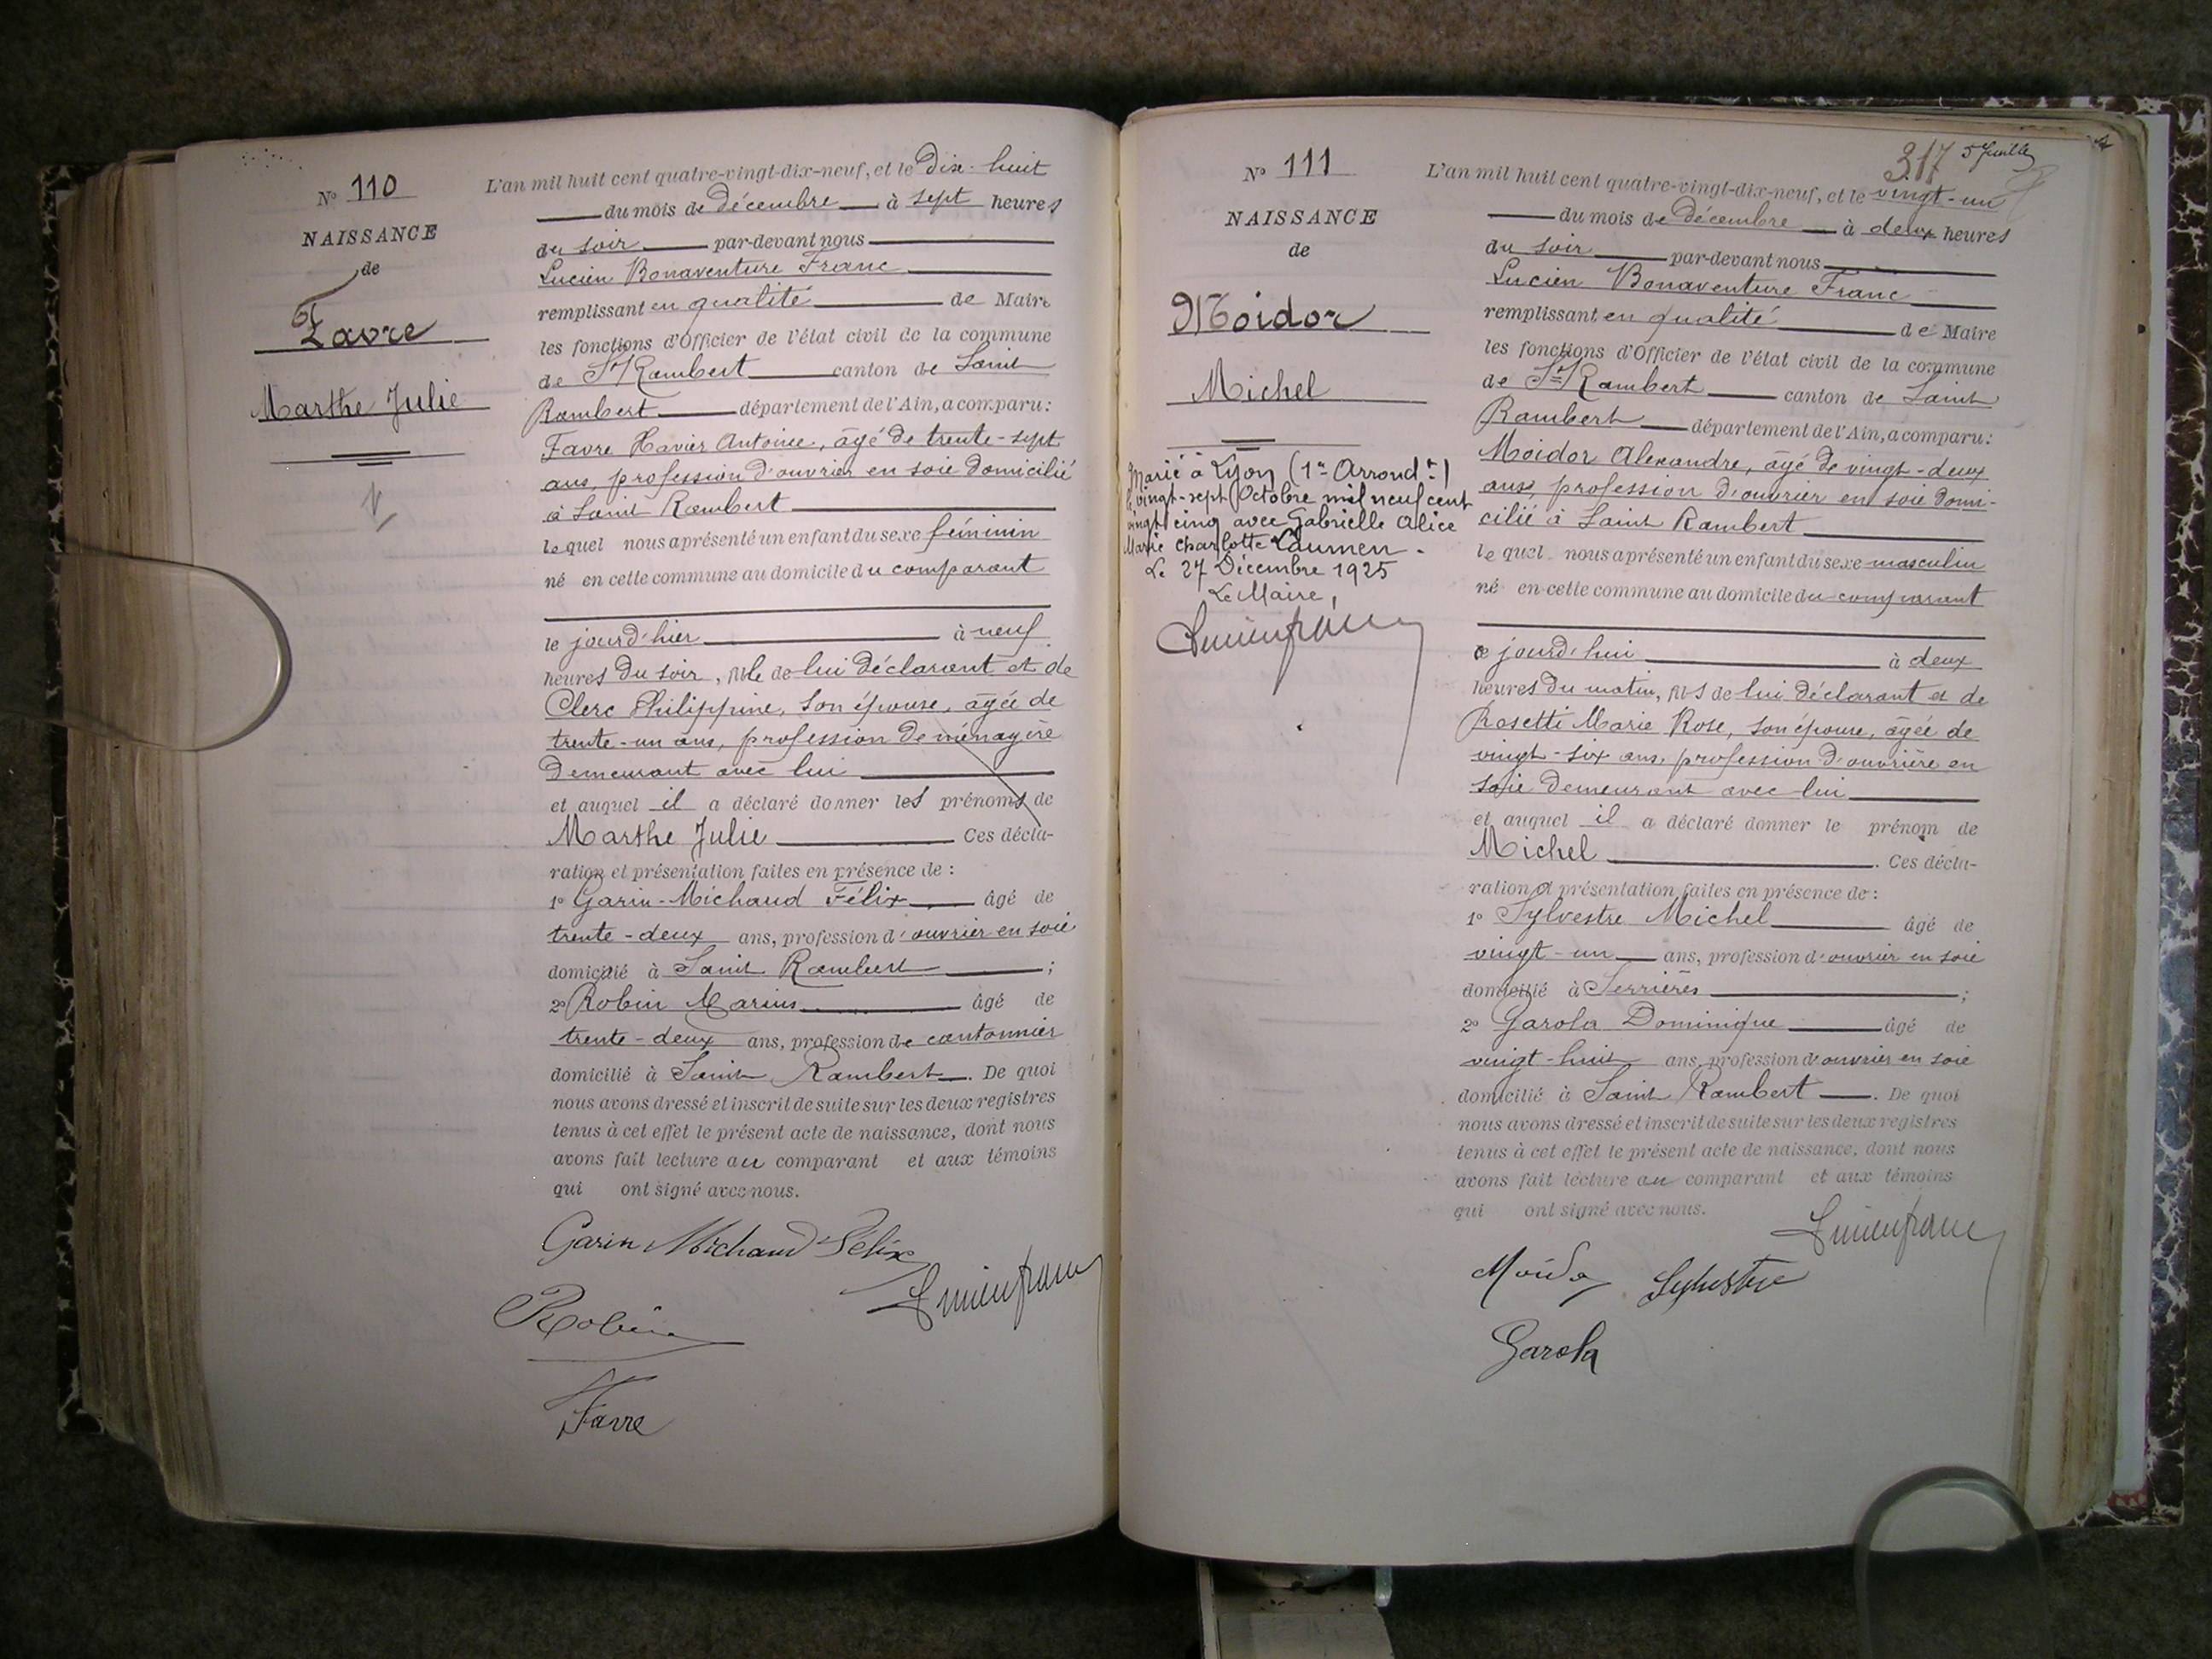 Nº 110
NAISSANCE
de
Favre
Marthe Julie
L'an mil huit cent quatre-vingt-dix-neuf, et le Dix-huit
du mois de Décembre à sept heures
du soir par-devant nous
Lucien Bonaventure Franc
remplissant en qualité de Maire
les fonctions d'Officier de l'état civil de la commune
de St Rambert canton de Saint
Rambert département de l'Ain, a comparu:
Favre Xavier Antoine, âgé de trente-sept
ans, profession d'ouvrier en soie domicilié
à Saint Rambert
lequel nous a présenté un enfant du sexe féminin
né en cette commune au domicile du comparant
le jour d'hier à neuf
heures du soir, fille de lui déclarant et de
Clerc Philippine, son épouse, âgée de
trente-un ans, profession de ménagère
demeurant avec lui
et auquel il a déclaré donner les prénoms de
Marthe Julie Ces décla-
ration et présentation faites en présence de :
1º Garin-Michaud Félix âgé de
trente-deux ans, profession d'ouvrier en soie
domicilié à Saint Rambert ;
2º Robin Marius âgé de
trente-deux ans, profession de cantonnier
domicilié à Saint Rambert. De quoi
nous avons dressé et inscrit de suite sur les deux registres
tenus à cet effet le présent acte de naissance, dont nous
avons fait lecture au comparant et aux témoins
qui ont signé avec nous.
Garin Michaud Félix
Lucien franc
Robin
Favre
317 5 Juillet
Nº 111
NAISSANCE
de
Moidor
Michel
Marié à Lyon (1er Arrondt)
le vingt-sept Octobre mil neuf cent
vingt cinq avec Gabrielle Alice
Marie Charlotte Laurnen.
Le 27 Décembre 1925
Le Maire,
Lucien franc
L'an mil huit cent quatre-vingt-dix-neuf, et le vingt-un
du mois de Décembre à deux heures
du soir par-devant nous
Lucien Bonaventure Franc
remplissant en qualité de Maire
les fonctions d'Officier de l'état civil de la commune
de St Rambert canton de Saint
Rambert département de l'Ain, a comparu:
Moidor Alexandre, âgé de vingt-deux
ans, profession d'ouvrier en soie domi-
cilié à Saint Rambert
lequel nous a présenté un enfant du sexe masculin
né en cette commune au domicile du comparant
ce jourd'hui à deux
heures du matin, fils de lui déclarant et de
Rosetti Marie Rose, son épouse, âgée de
vingt-six ans, profession d'ouvrière en
soie demeurant avec lui
et auquel il a déclaré donner le prénom de
Michel. Ces décla-
ration et présentation faites en présence de :
1º Sylvestre Michel âgé de
vingt-un ans, profession d'ouvrier en soie
domicilié à Serrières ;
2º Garola Dominique âgé de
vingt-huit ans, profession d'ouvrier en soie
domicilié à Saint Rambert. De quoi
nous avons dressé et inscrit de suite sur les deux registres
tenus à cet effet le présent acte de naissance, dont nous
avons fait lecture au comparant et aux témoins
qui ont signé avec nous.
Lucien franc
Moidor Sylvestre
Garola